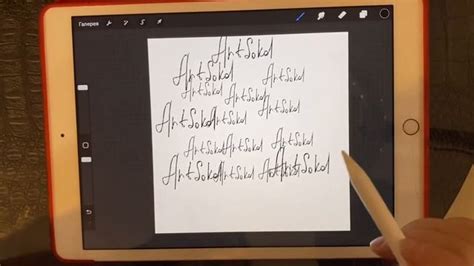 Галерея
ArtSokol
ArtSokol ArtSokol
ArtSokol ArtSokol
ArtSokol ArtSokol ArtSokol
ArtSokol ArtSokol ArtSokol
ArtSokol ArtSokol ArtSokol